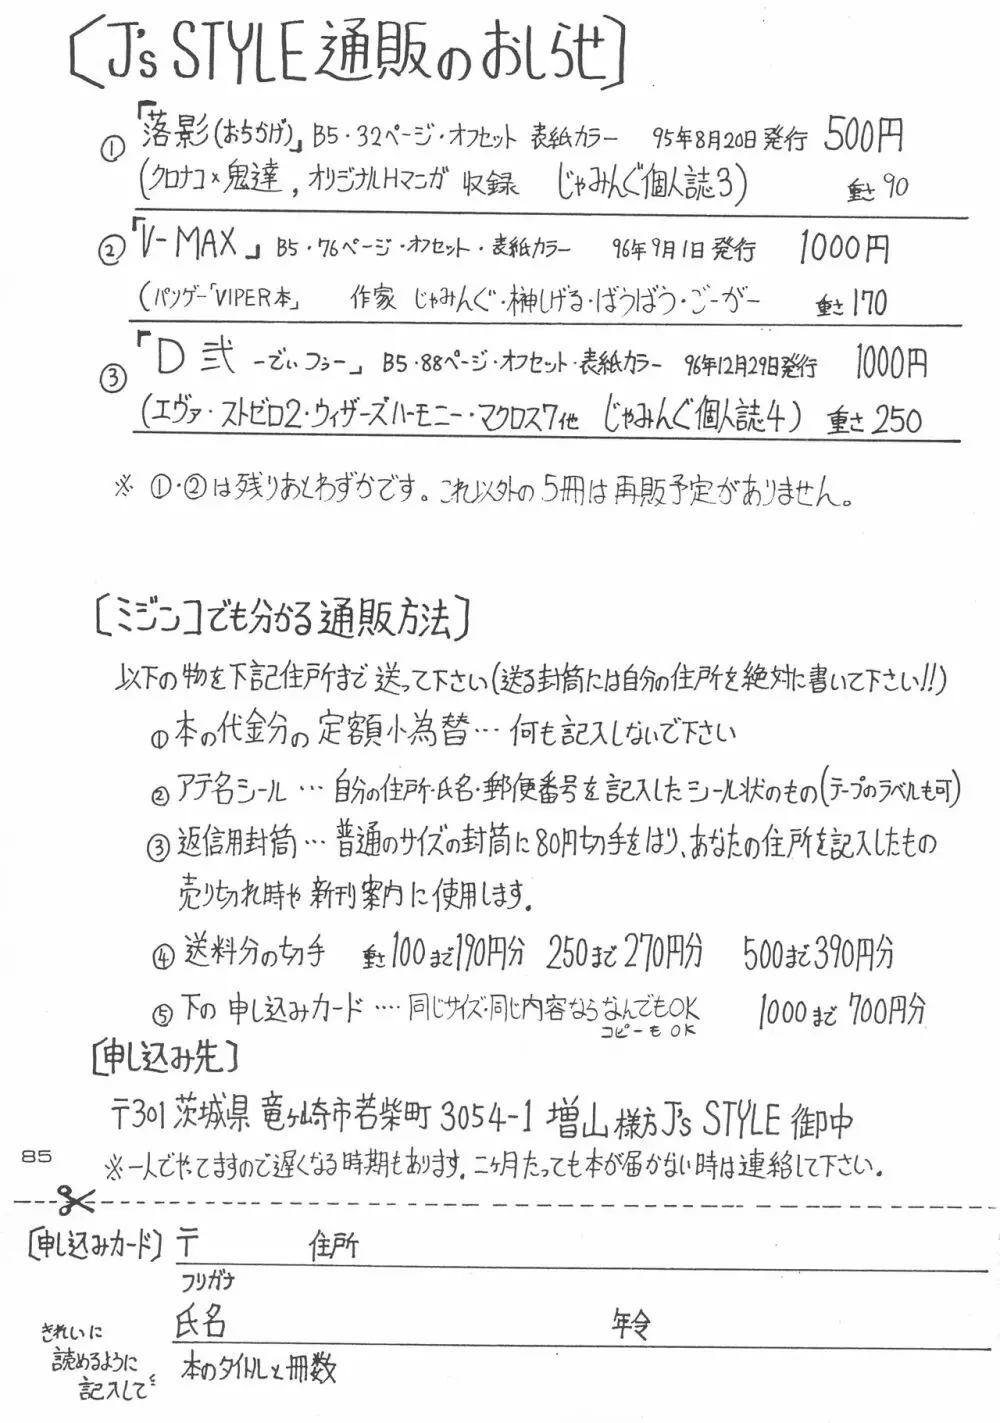 [J's STYLE 通販のおしらせ]
① 「落影(おちかげ)」 B5・32ページ・オフセット 表紙カラー 95年8月20日発行 500円
(クロナコ×鬼達, オリジナルHマンガ 収録 じゃみんぐ個人誌3) 重さ90
② 「V-MAX」 B5・76ページ・オフセット・表紙カラー 96年9月1日発行 1000円
(パソゲー「VIPER本」 作家 じゃみんぐ・榊しげる・ばうばう・ごーがー 重さ170
③ 「D 弐 ーでぃつぅー」 B5・88ページ・オフセット・表紙カラー 96年12月29日発行 1000円
(エヴァ・ストゼロ2・ウィザーズハーモニー・マクロス7他 じゃみんぐ個人誌4) 重さ250
※ ①・②は残りあとわずかです。これ以外の5冊は再販予定がありません。
[ミジンコでも分かる通販方法]
以下の物を下記住所まで送って下さい(送る封筒には自分の住所を絶対に書いて下さい!!)
①本の代金分の定額小為替… 何も記入しないで下さい
② アテ名シール … 自分の住所・氏名・郵便番号を記入したシール状のもの(テープのラベルも可)
③ 返信用封筒 … 普通のサイズの封筒に80円切手をはり、あなたの住所を記入したもの
売り切れ時や新刊案内に使用します.
④ 送料分の切手 重さ100まで190円分 250まで270円分 500まで390円分
⑤ 下の申し込みカード …. 同じサイズ・同じ内容ならなんでもOK 1000まで700円分
コピーもOK
[申し込み先]
〒301 茨城県 竜ヶ崎市若柴町 3054-1 増山様方 J's STYLE 御中
85
※一人でやってますので遅くなる時期もあります. 二ヶ月たっても本が届かない時は連絡して下さい.
[申し込みカード] 〒 住所
フリガナ
氏名 年令
きれいに
読めるように
記入して
本のタイトルと冊数